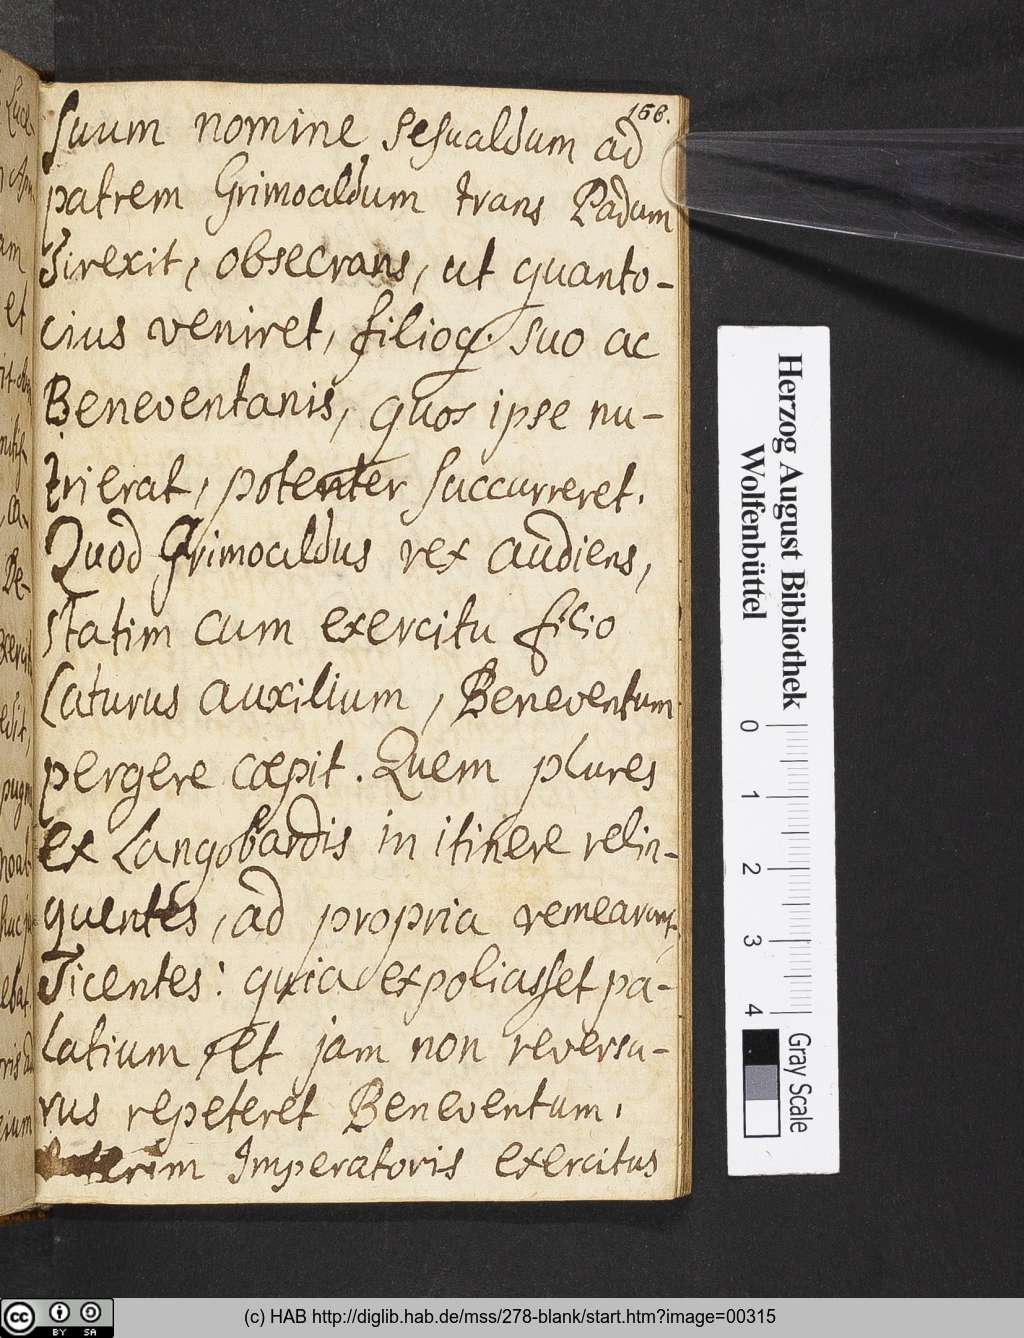 158.
suum nomine Sesualdum ad
patrem Grimoaldum trans Padum
direxit, obsecrans, ut quanto-
cius veniret, filioq. suo ac
Beneventanis, quos ipse nu-
trierat, potenter succurreret.
Quod Grimoaldus rex audiens,
statim cum exercitu filio
laturus auxilium, Beneventum
pergere cœpit. Quem plures
ex Langobardis in itinere relin-
quentes, ad propria remearunt,
dicentes: quia expoliasset pa-
latium, et jam non reversu-
rus repeteret Beneventum.
Interim Imperatoris exercitus
Herzog August Bibliothek
Wolfenbüttel
0 1 2 3 4
Gray Scale
cc BY SA
(c) HAB http://diglib.hab.de/mss/278-blank/start.htm?image=00315